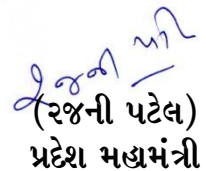 રજની
(રજની પટેલ)
પ્રદેશ મહામંત્રી